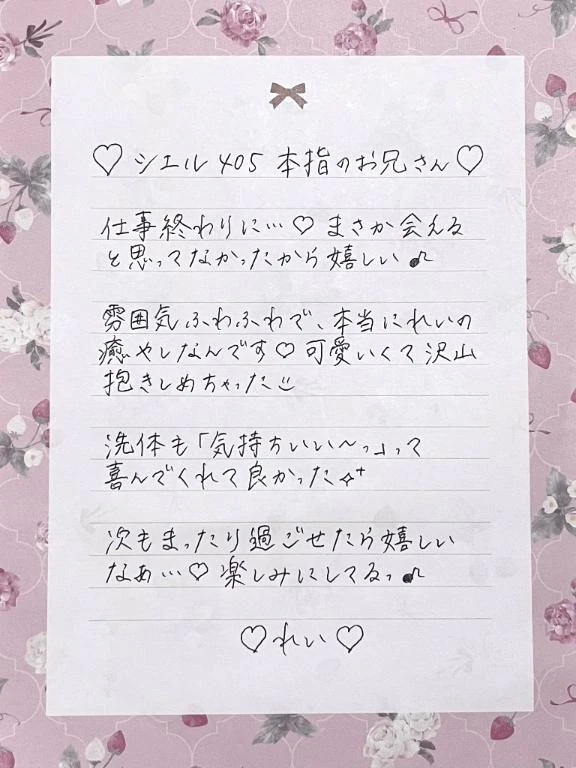 ♡シエル 405 本指のお兄さん♡
仕事終わりに…♡ まさか会える
と思ってなかったから嬉しい♪
雰囲気ふわふわで、本当にれいの
癒やしなんです♡ 可愛いくて沢山
抱きしめちゃった
洗体も「気持ちいい〜っ」って
喜んでくれて良かった
次もまったり過ごせたら嬉しい
なぁ…♡ 楽しみにしてるっ♪
♡れい♡